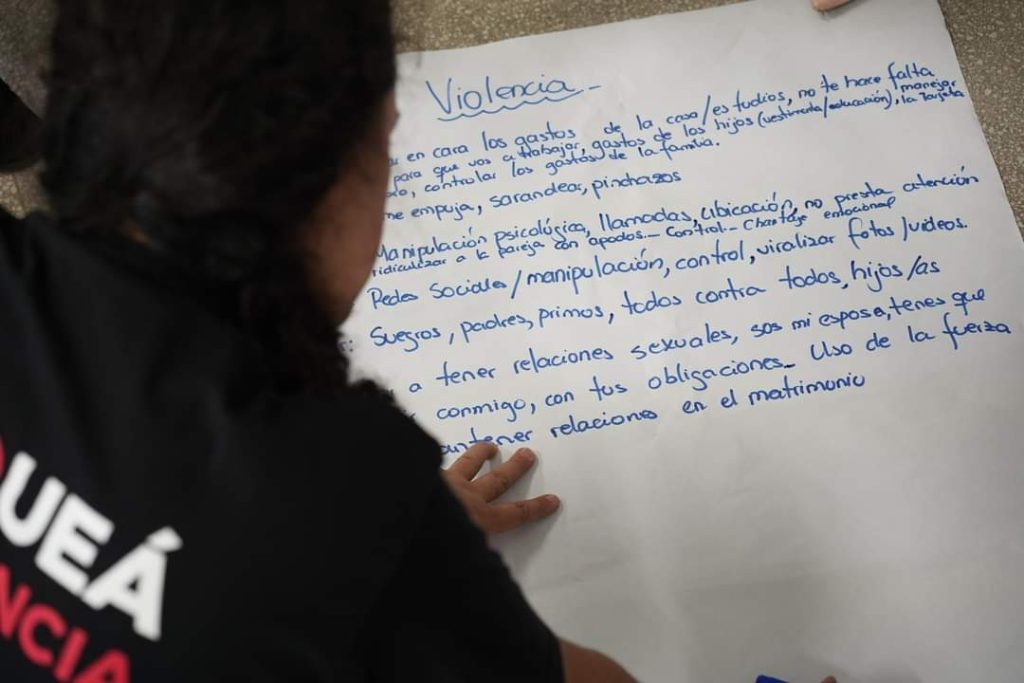 Violencia
en cara los gastos de la casa/estudios, no te hace falta
para que vas a trabajar, gastos de los hijos (vestimenta/educación), manejar la tarjeta
controlar los gastos de la familia.
me empuja, sarandear, pinchazos
Manipulación psicológica, llamadas, Ubicación, no presta atención
ridiculizar a la pareja con apodos.- Control.- Chantaje emocional
Redes Sociales/manipulación, control, viralizar fotos/videos.
Suegros, padres, primos, todos contra todos, hijos/as
a tener relaciones sexuales, sos mi esposa, tenes que
conmigo, con tus obligaciones.- Uso de la fuerza
relaciones en el matrimonio
UEÁ
NCIA